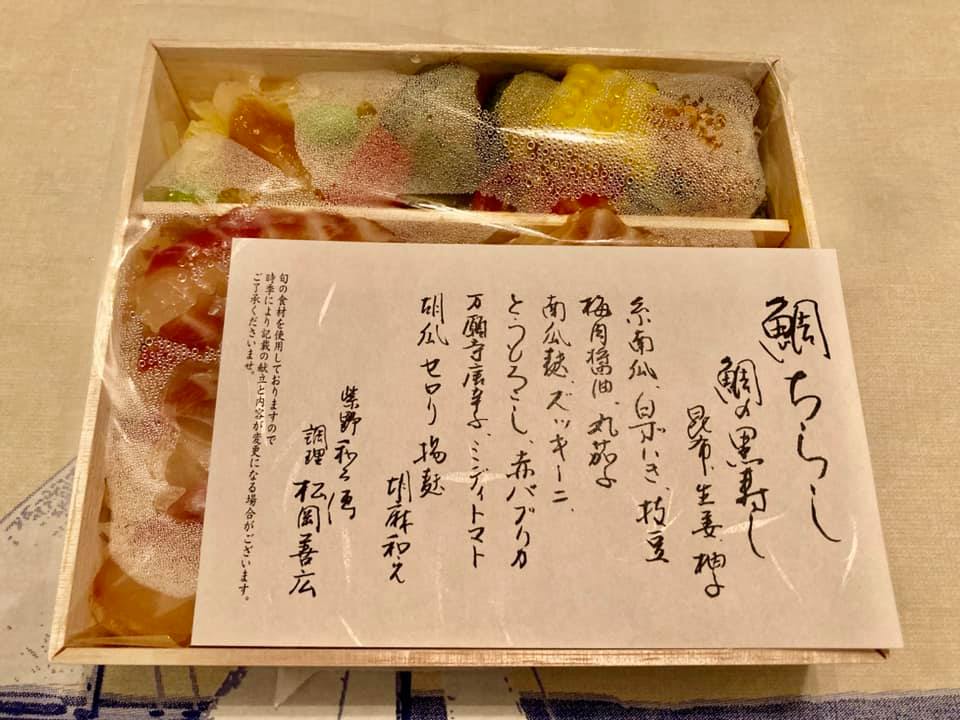 鯛ちらし
鯛の黒寿し
昆布、生姜、柚子
糸南瓜、白ずいき、枝豆
梅肉醤油、丸茄子
南瓜麩、ズッキーニ、
とうもろこし、赤パプリカ
万願寺唐辛子、ミディトマト
胡瓜 セロリ 揚麩
胡麻和え
紫野和久傳
調理 松岡善広
旬の食材を使用しておりますので
時季により記載の献立と内容が変更になる場合がございます。
ご了承くださいませ。